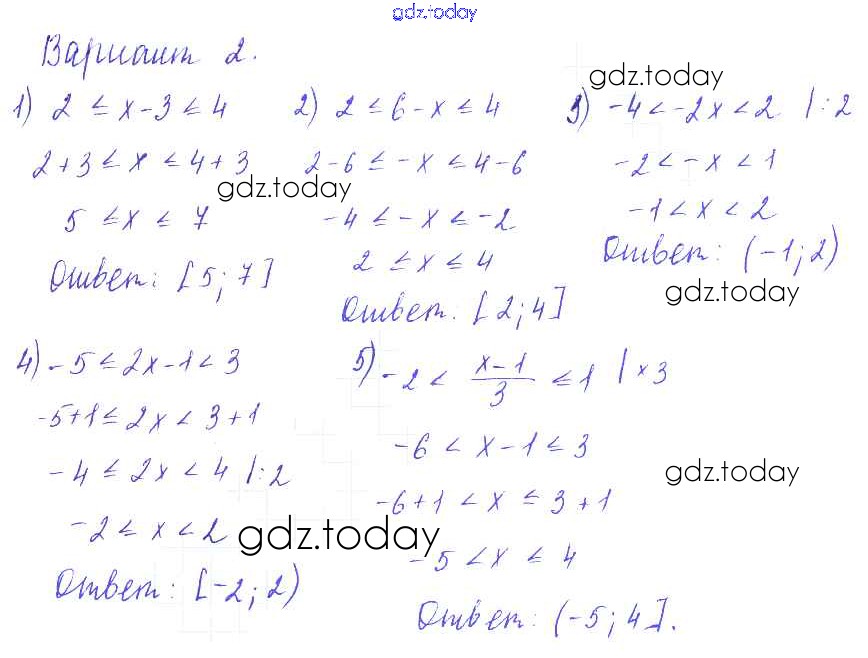 gdz.today
Вариант 2.
gdz.today
1) 2 ≤ x-3 ≤ 4
2+3 ≤ x ≤ 4+3
gdz.today
5 ≤ x ≤ 7
Ответ: [5; 7]
2) 2 ≤ 6-x ≤ 4
2-6 ≤ -x ≤ 4-6
-4 ≤ -x ≤ -2
2 ≤ x ≤ 4
Ответ: [2; 4]
3) -4 < -2x < 2 | :2
-2 < -x < 1
-1 < x < 2
Ответ: (-1; 2)
gdz.today
4) -5 ≤ 2x-1 < 3
-5+1 ≤ 2x < 3+1
-4 ≤ 2x < 4 | :2
-2 ≤ x < 2
gdz.today
Ответ: [-2; 2)
5) -2 < \frac{x-1}{3} ≤ 1 | ×3
-6 < x-1 ≤ 3
gdz.today
-6+1 < x ≤ 3+1
-5 < x ≤ 4
Ответ: (-5; 4].